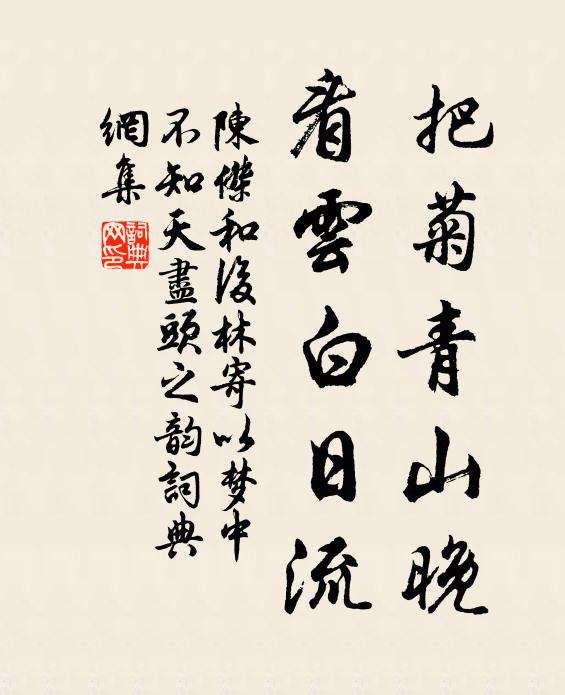 把菊青山晚
看雲白日流
陳傑和後林寄以梦中
不知天盡頭之韵詞典
網集
詞典
网印